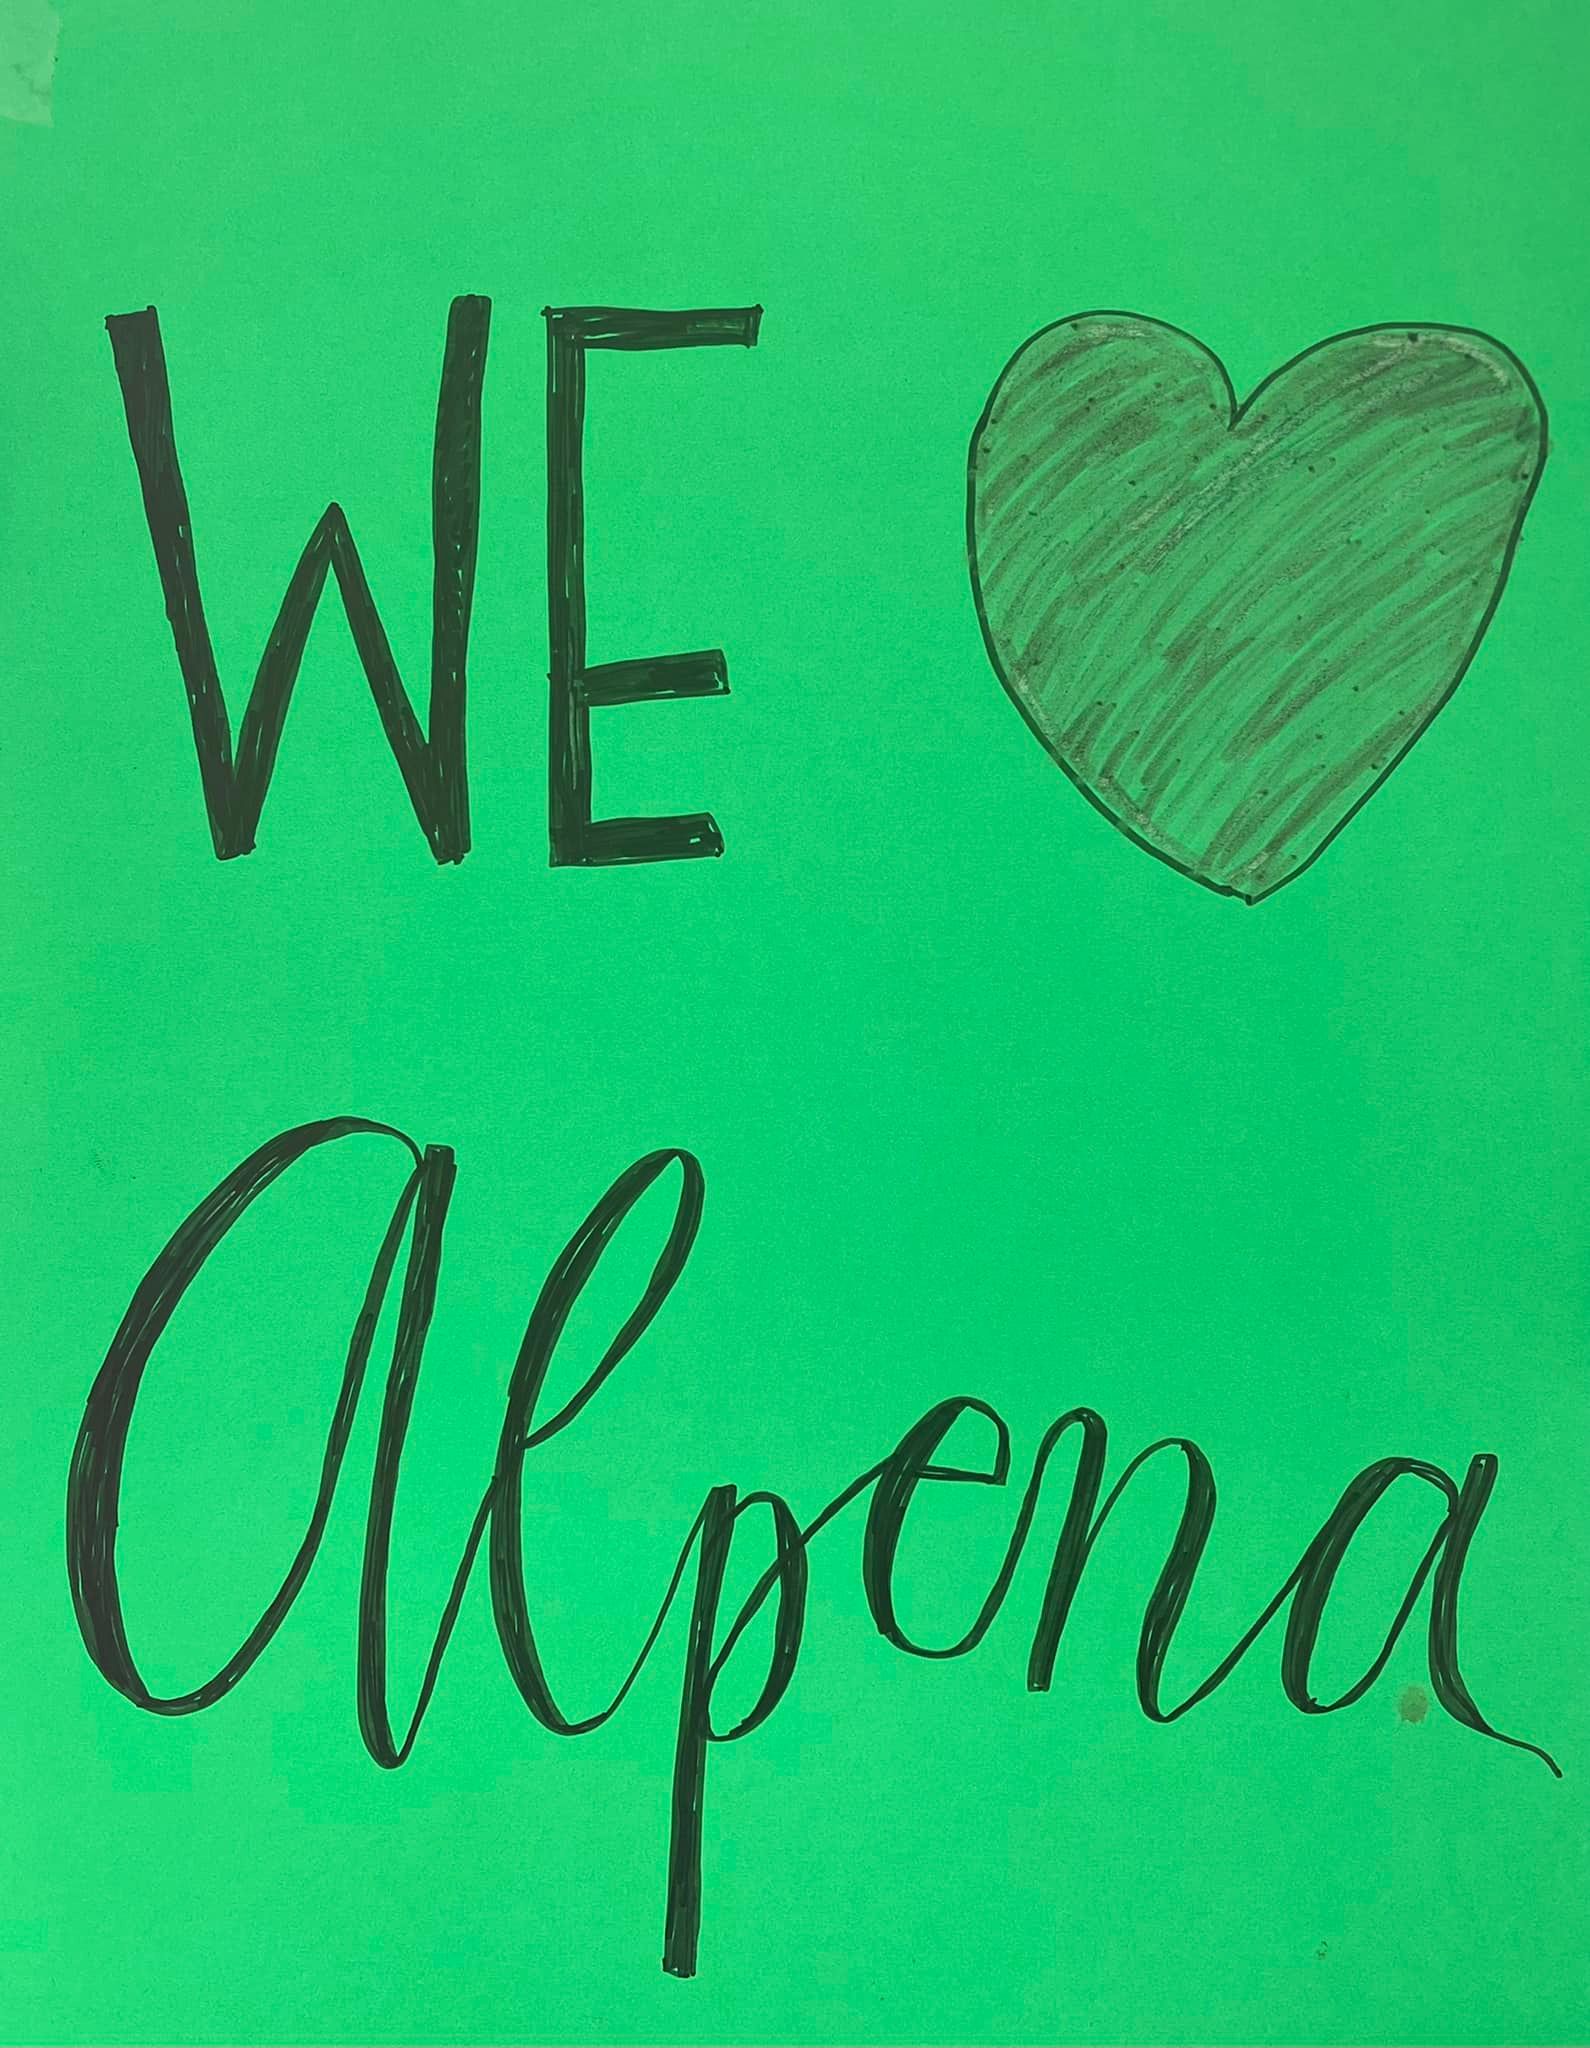 WE ♥
Alpena